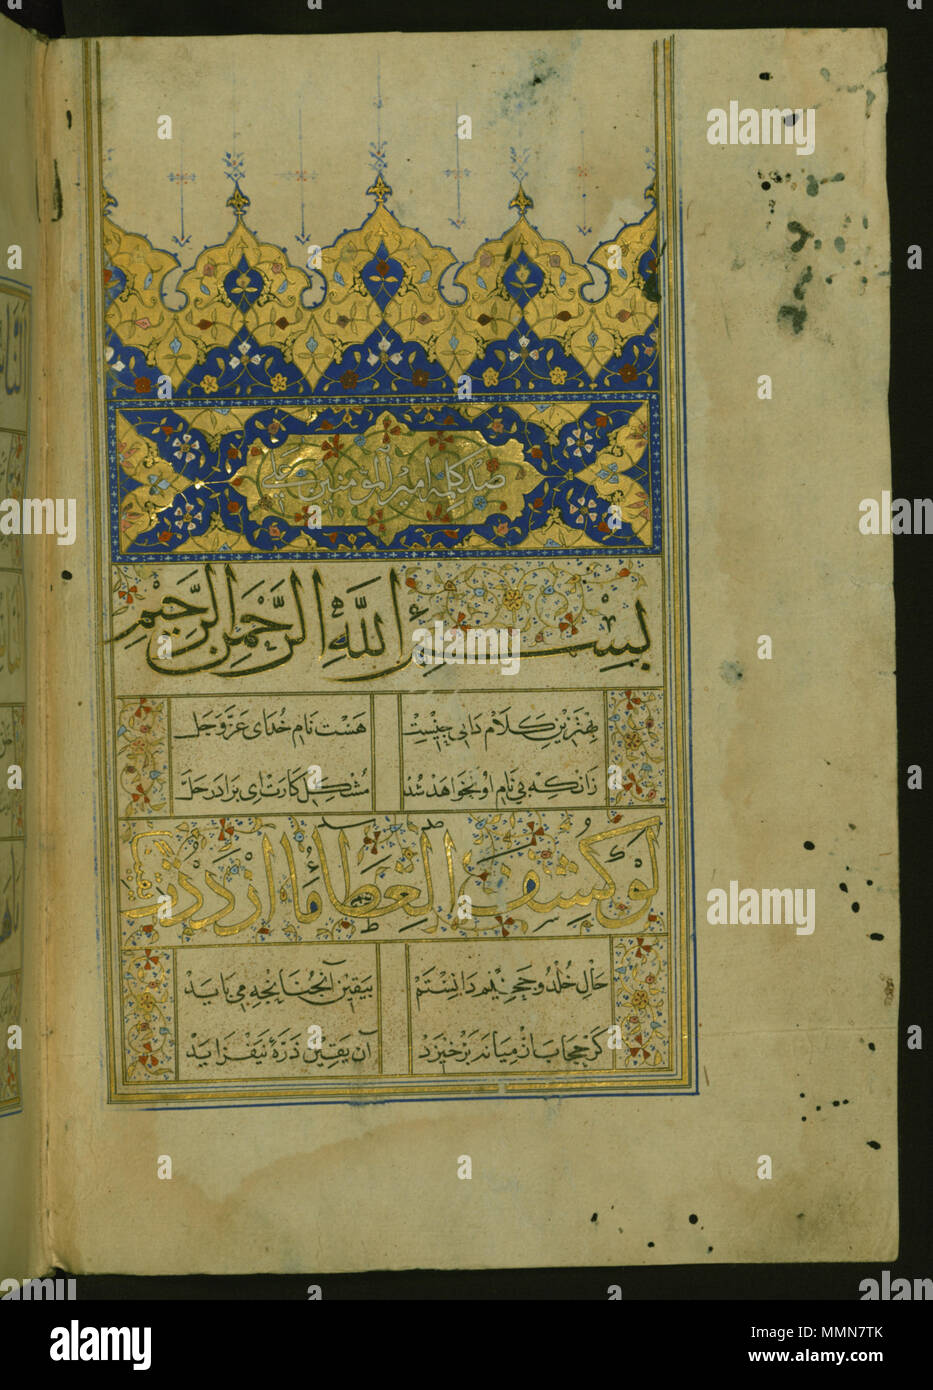 صد کلمه امیر المومنین علی
بِسْمِ اللَّهِ الرَّحْمَنِ الرَّحِیمِ
بهترین کلام دانی چیست هست نام خدای عز و جل
زانکه بی نام او نخواهد شد مشکل کارت ای برادر حل
لو کشف الغطاء ما ازددت یقینا
حال خلد و جحیم دانستم بیقین آنچنانچه می باید
کر حجاب از میانه برخیزد آن یقین ذرهٔ نیفزاید
alamy
alamy
alamy
alamy
alamy
Image ID: MMN7TK
www.alamy.com